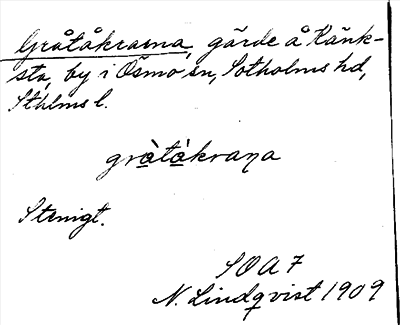 Gråtåkrarna, gärde å Känk-
sta, by i Ösmo sn, Sotholms hd,
Sthlms l.
grå̀tå̀kraṇa
Stenigt.
SOA 7
N. Lindqvist 1909